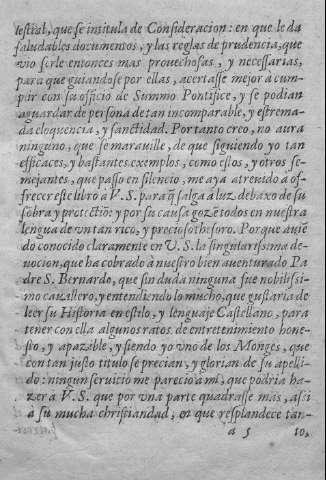 lestial, que se intitula de Consideracion: en que le da
saludables documentos, y las reglas de prudencia, que
vio serle entonces mas prouechosas, y necessarias,
para que guiandose por ellas, acertasse mejor à cum-
plir con su officio de Summo Pontifice, y se podian
aguardar de persona de tan incomparable, y estrema-
da eloquencia, y sanctidad. Por tanto creo, no aura
ninguno, que se marauille, de que siguiendo yo tan
efficaces, y bastantes exemplos, como estos, y otros se-
mejantes, que passo en silencio, me aya atreuido a of-
frecer este libro à V. S. para q̃ salga à luz debaxo de su
sobra y protectiõ: y por su causa gozẽ todos en nuestra
lengua de vn tan rico, y precioso thesoro. Porque auiẽ
do conocido claramente en V. S. la singularissima de-
uocion, que ha cobrado à nuestro bien auenturado Pa
dre S. Bernardo, que sin duda ninguna fue nobilissi-
mo cauallero, y entendiendo lo mucho, que gustaria de
leer su Historia en estilo, y lenguaje Castellano, para
tener con ella algunos ratos de entretenimiento hone-
sto, y apazable, y siendo yo vno de los Monges, que
con tan justo titulo se precian, y glorian de su apelli-
do: ningun seruicio me parecio a mi, que podria ha-
zer a V. S. que por vna parte quadrasse mas, assi
à su mucha christiandad, en que resplandece tan-
a 5 to,